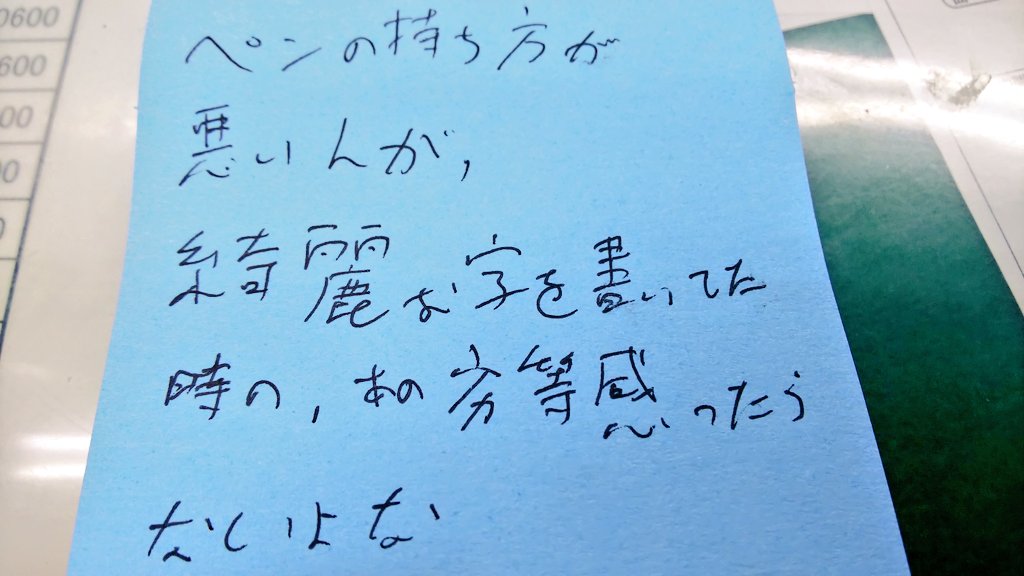 0600
600
00
00
ペンの持ち方が
悪い人が,
綺麗な字を書いてた
時の,あの劣等感ったら
ないよな